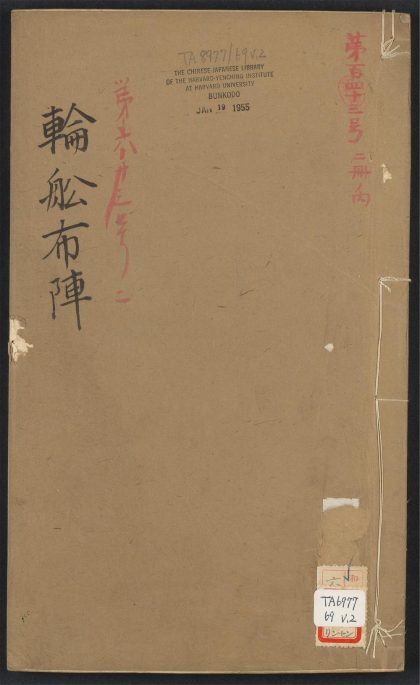 TA 8977/69 v.2
THE CHINESE-JAPANESE LIBRARY
OF THE HARVARD-YENCHING INSTITUTE
AT HARVARD UNIVERSITY
BUNKODO
JAN 19 1955
第百四十三号 二冊内
第六 号 二
輪船布陣
六
TA6977
69 v.2
リンセン